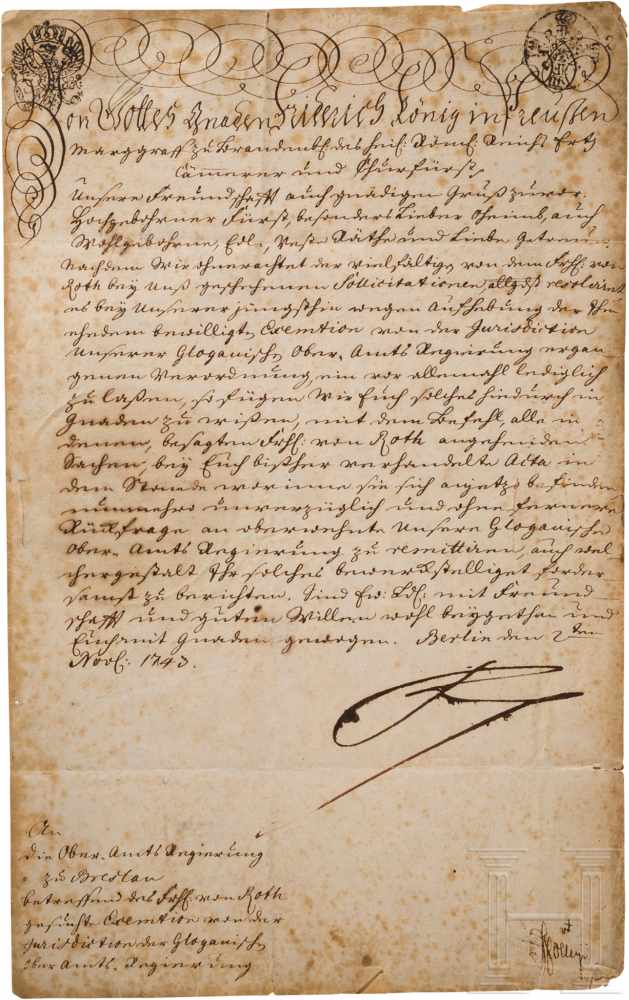 Von Gottes Gnaden Friderich König in Preussen
Marggraff zu Brandenb: des heil: Röm: Reichs Ertz
Cämmerer und Churfürst,
Unsere Freundschafft auch gnädigen Gruß zuvor.
Hochgebohrner Fürst, besonders Lieber Oheimb, auch
Wohlgebohrne, Edle, Veste Räthe und Liebe Getreue.
Nachdem Wir ohnerachtet der vielfältigen von dem Frhl: von
Roth bey Unß geschehenen Sollicitationen allergdst resolviret
es bey Unserer jüngsthin wegen Aufhebung der Ihm
ehedem bewilligten Exemtion von der Jurisdiction
Unserer Glogauischen Ober-Amts Regierung ergan-
genen Verordnung, ein vor allemahl lediglich
zu laßen, so fügen Wir Euch solches hiedurch in
Gnaden zu wißen, mit dem Befehl, alle in
denen, besagten Frhl: von Roth angehenden
Sachen, bey Euch bißher verhandelte Acta in
dem Stande worinne sie sich anjetzo befinden
nunmehro unverzüglich und ohne fernere
Rückfrage an oberwehnte Unsere Glogauische
Ober-Amts Regierung zu remittiren, auch wel
chergestalt Ihr solches bewerckstelliget forder
samst zu berichten. Sind Ew: Lbd: mit Freund
schafft und guten Willen wohl beygethan und
Euch mit Gnaden gewogen. Berlin den 2ten
Novb: 1743.
An
die Ober-Amts Regierung
zu Breslau
betreffend des Frhl: von Roth
gesuchte Exemtion von der
Jurisdiction der Glogauischen
Ober Amts-Regierung